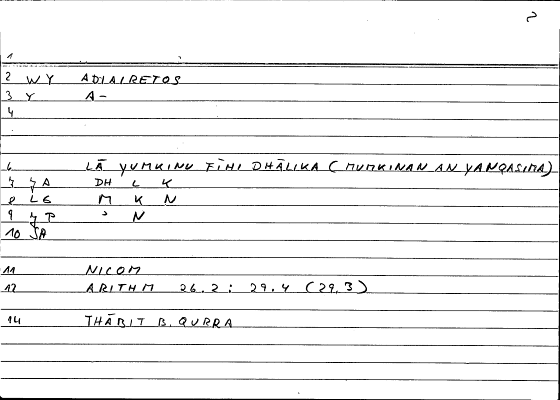 2
1
2 WY ADIAIRETOS
3 Y A-
4
6 LĀ YUMKINU FĪHI DHĀLIKA (MUMKINAN AN YANQASIMA)
7 YA DH L K
8 LE M K N
9 YP ʾ N
10 SA
11 NICOM
12 ARITHM 26.2 : 29.4 (29.3)
14 THĀBIT B. QURRA